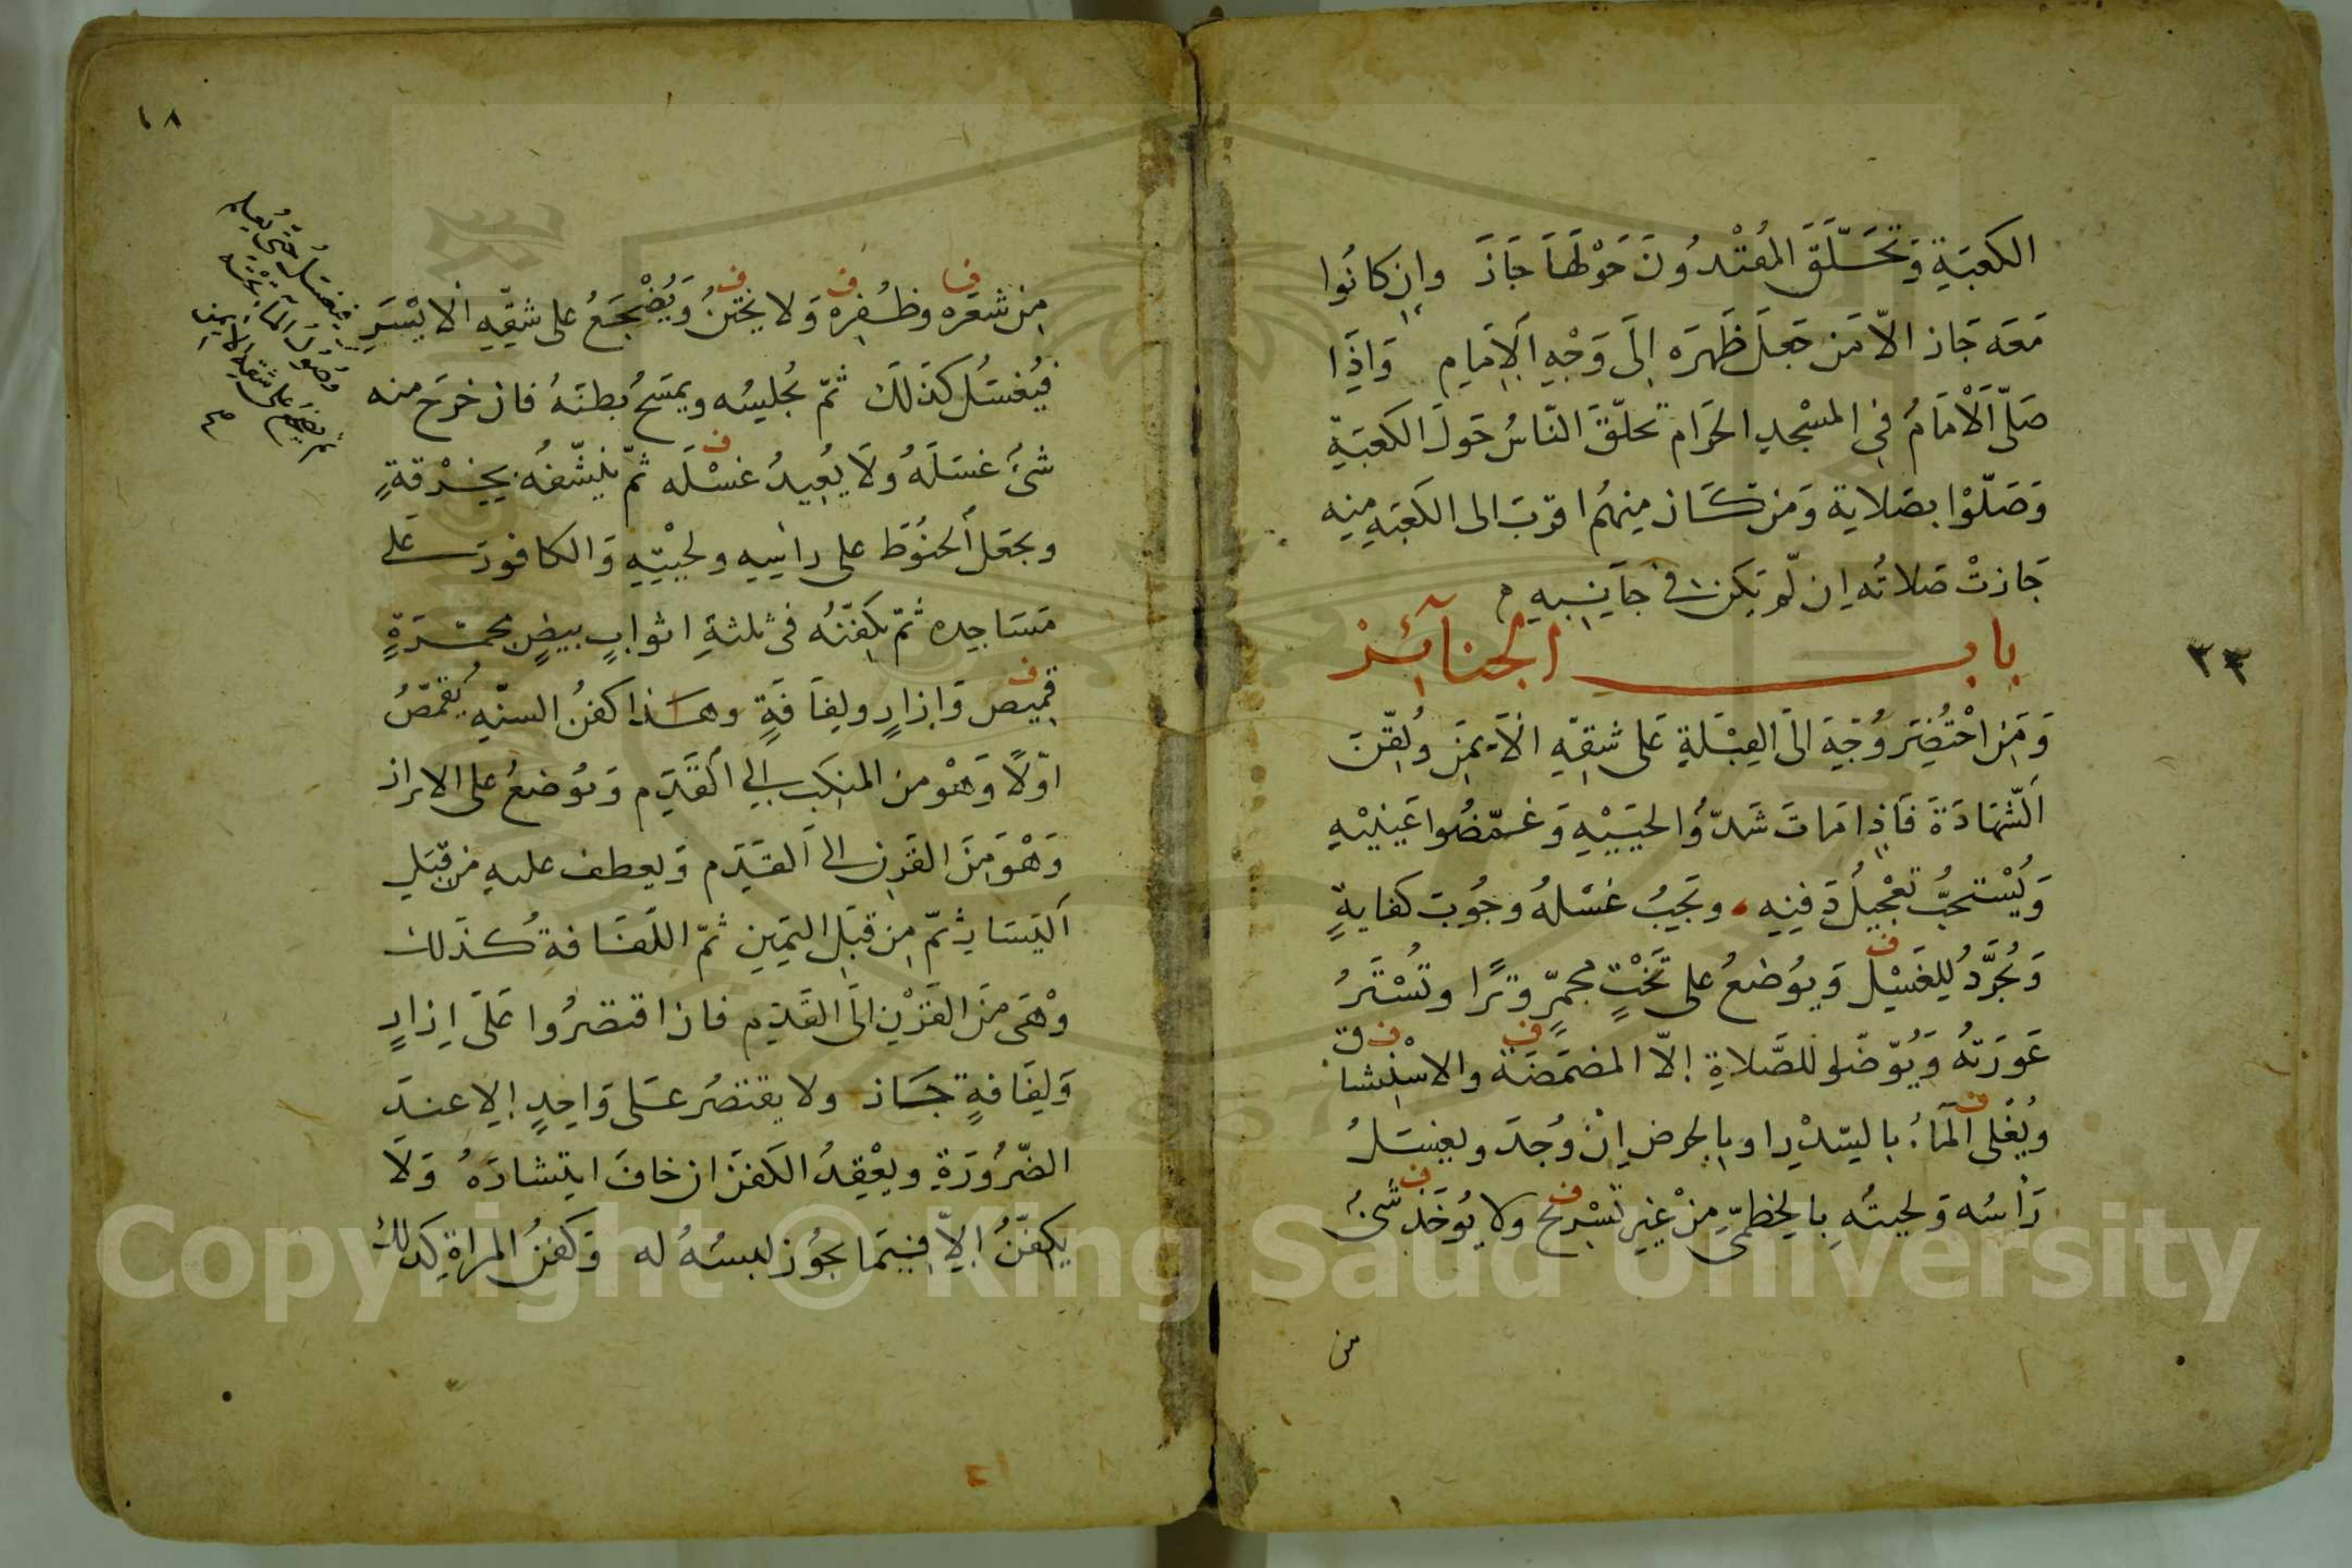 الكعبَةِ وَتحَلَّقَ المُقتْدُونَ حَوْلهَا جَازَ وان كانُوا
مَعَه جَاز الّا مَن جَعلَ ظَهرَه اِلَى وَجْهِ الاِمَامِ وَاِذَا
صَلّى اَلْامَامُ في المسْجدِ الحَرامِ تحلّقَ النّاسُ حَولَ الكعبَةِ
وَصَلّوْا بصَلاتِه وَمَن كَان مِنهُم اقربَ الى الكَعبَةِ مِنه
جَازتْ صَلاتُه اِن لَّم يَكن في جَانِبِهِ
باب الجنآئز
وَمَنِ احْتُضِرَ وُجِّهَ الَى القِبْلَةِ عَلى شِقِّهِ الاَيمَنِ ولُقِّنَ
اَلشّهَادَةَ فَاِذا مَاتَ شَدّوُا لحيَيْهِ وَغمّضُوا عَينيْهِ
وَيُسْتحَبُّ تعْجيْلُ دَفنِه وتجِبُ غسْلهُ وجُوبَ كفايةٍ
وَيُجَرَّدُ لِلغَسْلِ وَيوُضعُ على تَخْتٍ مُجمّرٍ وترًا وتُسْتَرُ
عَورَتهُ وَيُوّضّاُ للصَّلاةِ اِلّا المضمَضَة والاسْتِنشاق
ويُغْلى المَآءُ بالسّدْرِ او بالحرضِ اِنْ وُجدَ ويغسَلُ
رَأسُه وَلحيتُه بالخِطْمِيّ مِنْ غيرِ تسْرِيح ولا يُوخَذ شَئٌ
من
٣٣
١٨
مِن شعَره وظُفِره وَلا يختَنُ وَيُضْجَعُ على شقِّهِ الْايْسَرِ
فيُغسَلُ كذلَكَ ثمّ يُجلِسُه ويمسَحُ بطنَهُ فان خرَج منه
شئٌ غسَلَهُ ولَا يُعِيدُ غسْلَه ثمّ يُنشّفُه بخِرْقةٍ
ويجعَل الحنُوَط على راْسِهِ ولحيْتِهِ وَالكافورَ عَلى
مَسَاجِده ثمّ يكَفّنُه في ثلثةِ اثوابٍ بيضٍ مجمّرَةٍ
قمِيصٍ وَازارٍ ولِفاَفَةٍ وهَذا كفنُ السنّه يُقمّصُ
اوّلًا وَهْوَ من المنكَب الى القَدَمِ وَيوُضعُ على الازار
وَهْوَ مِنَ القَرنِ الى اَلقَدَمِ وَيعطف عليهِ من قِبَلِ
اَليَسَارِ ثمّ مِن قِبَلِ اليَمِينِ ثمّ اللّفَافةُ كذلك
وْهىَ مِنَ القَرْنِ الَى القَدَمِ فان اقتصَرُوا عَلَى اِزارٍ
وَلِفَافةٍ جَاز ولا يقتصَرُ عَلى وَاحِدٍ اِلا عندَ
الضّرُورَةِ ويعْقِدُ الكَفنَ ان خافَ انتِشارَهُ وَلَا
يكفّنُ اِلّا فيمَا يجُوز لبسُهُ له وَكفنُ المراةِ كذلك
فيغسَلُ حَتى يُعلَم
وصُولُ المآءِ تحْتَه
ثم يضجَعُ على شقه الايمن
صح